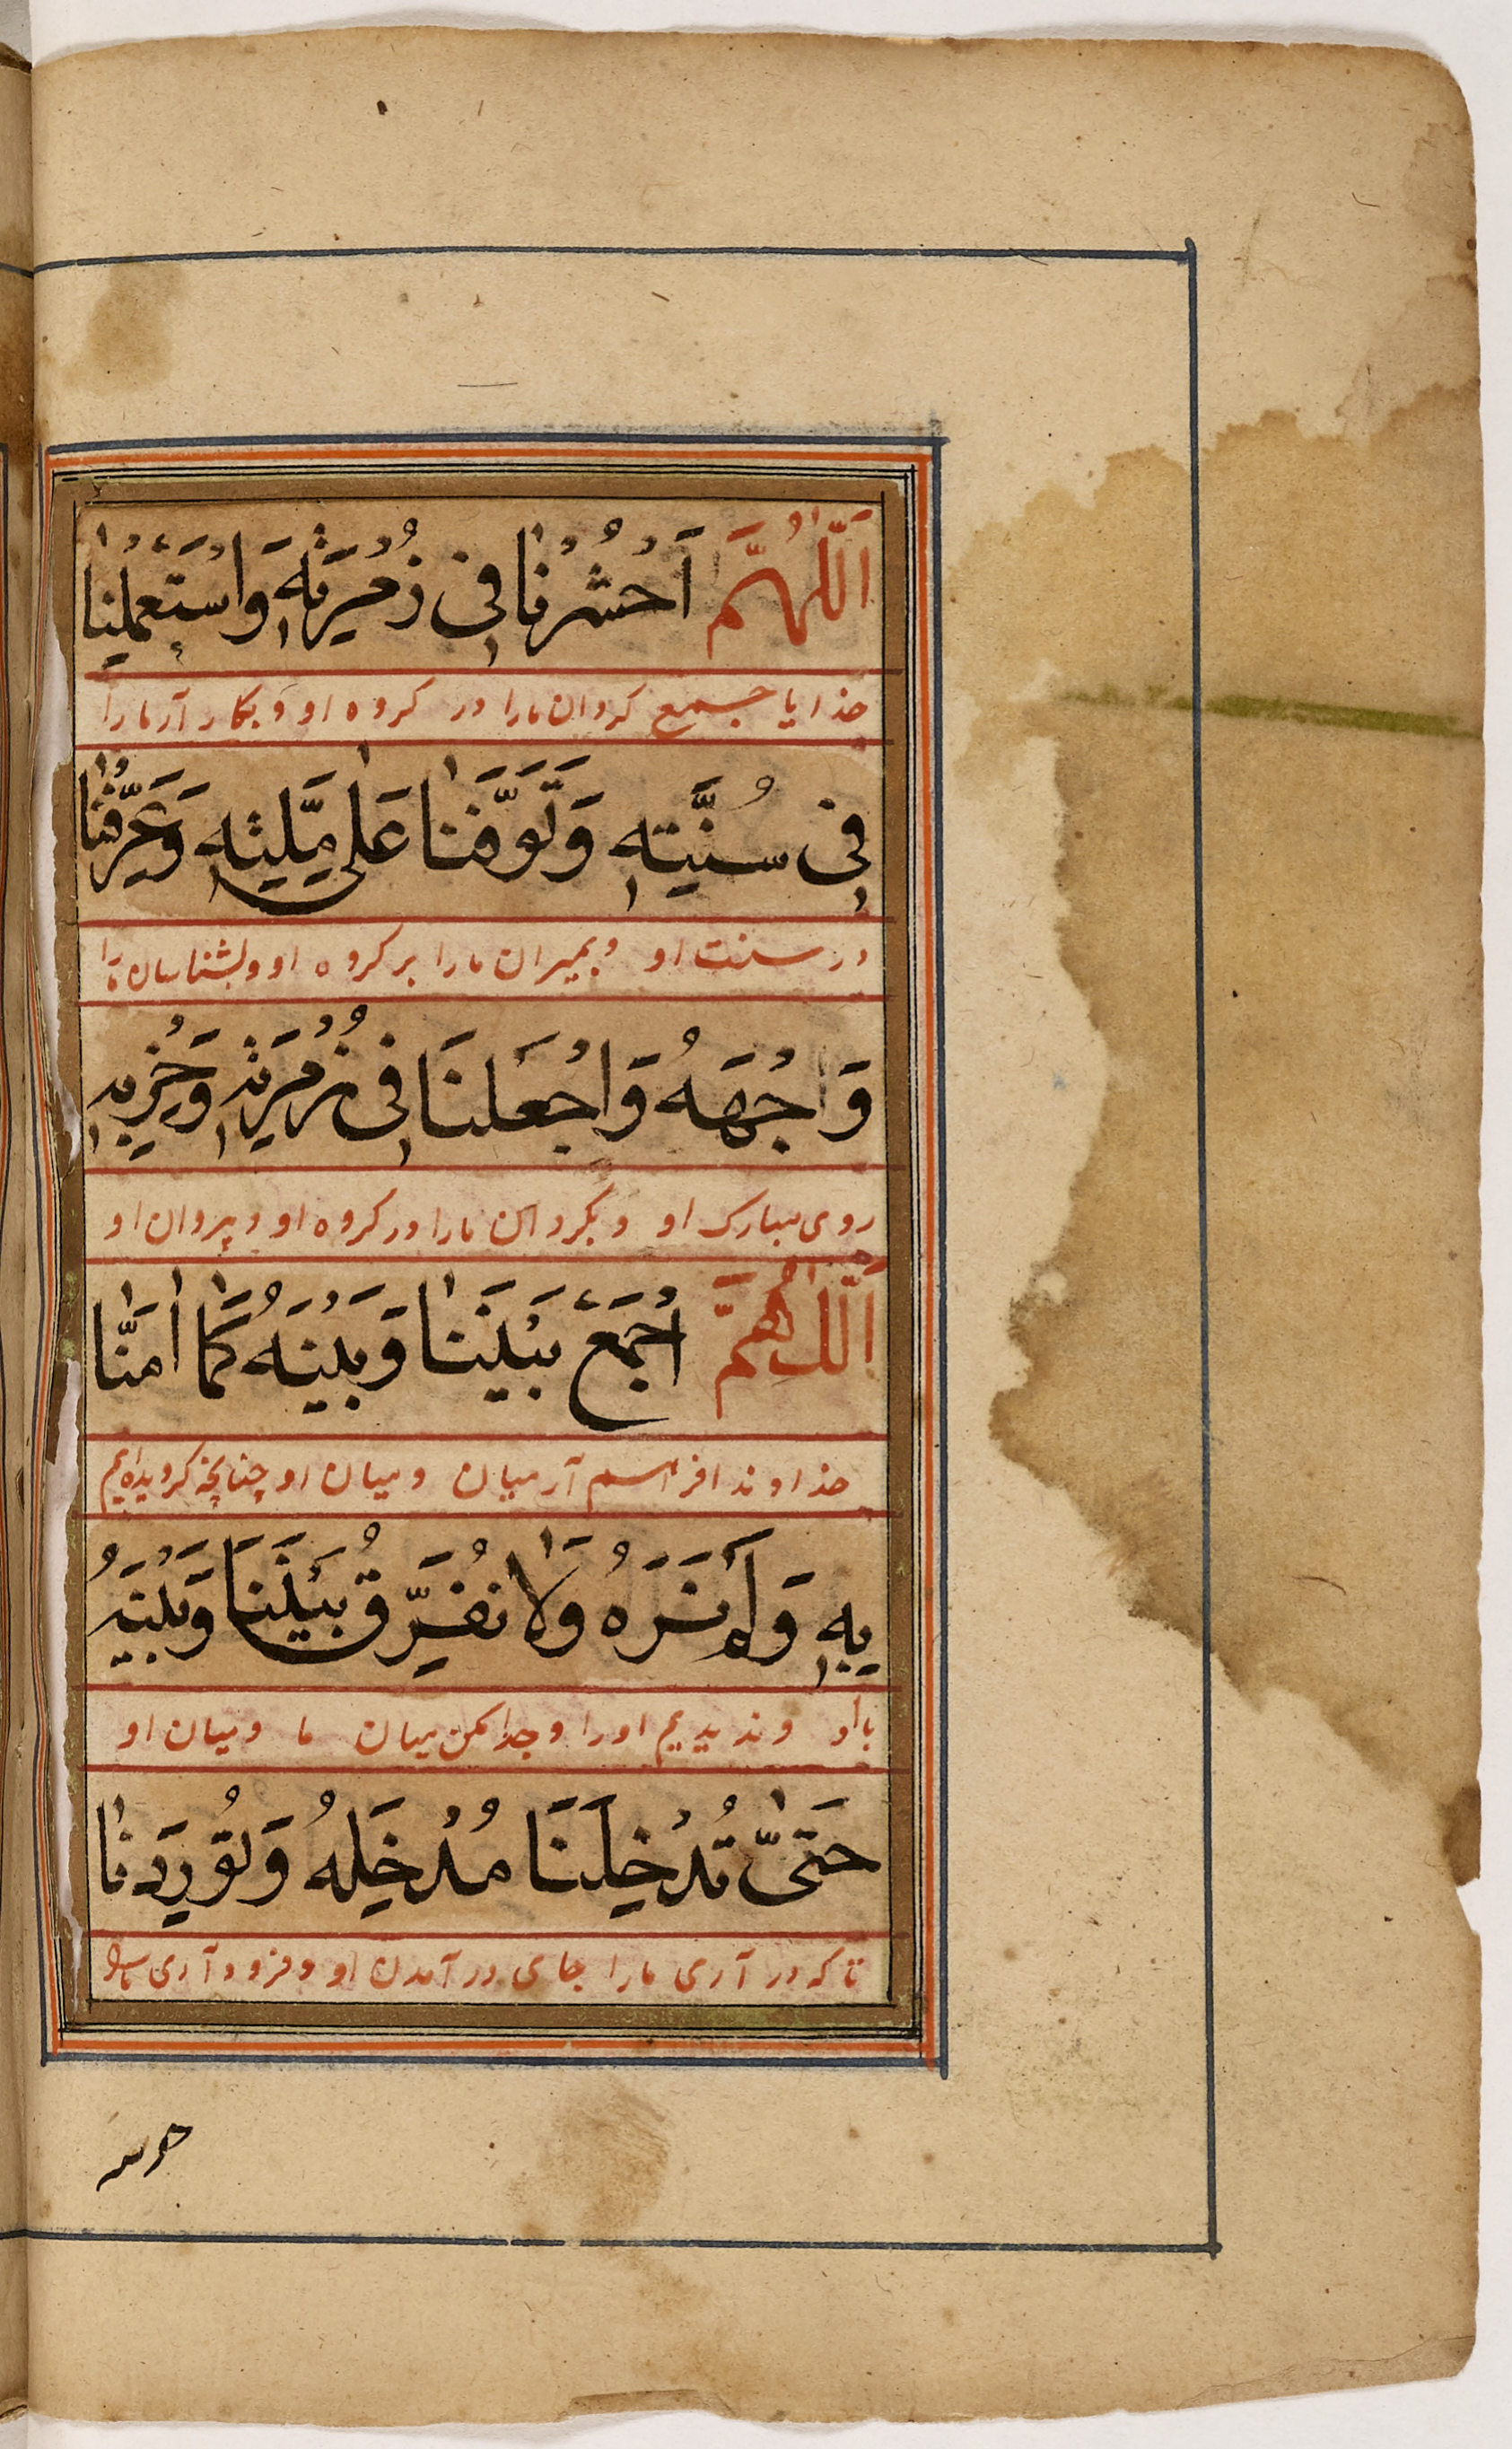 اَللّٰهُمَّ اَحْشُرْنَا فِی زُمْرَتِهٖ وَاسْتَعْمِلْنَا
خدایا جمع کردان مارا در کروه او و بکار آر مارا
فِی سُنَّتِهٖ وَتَوَفَّنَا عَلٰی مِلَّتِهٖ وَعَرِّفْنَا
در سنت او و بمیران مارا بر کروه او و بشناسان مارا
وَاجْهَهُ وَاجْعَلْنَا فِی زُمْرَتِهٖ وَحِزْبِهٖ
روی مبارک او و بکردان مارا در کروه او و پیروان او
اَللّٰهُمَّ اجْمَعْ بَیْنَنَا وَبَیْنَهُ كَمَا اٰمَنَّا
خداوندا فراهم آر میان و میان او چنانچه کرویده‌ایم
بِهٖ وَلَمْ نَرَهُ وَلَا نُفَرِّقْ بَیْنَنَا وَبَیْنَهُ
باو و ندیدیم اورا و جدا مکن میان ما و میان او
حَتّٰی تُدْخِلَنَا مُدْخَلَهُ وَتُورِدَنَا
تا که در آری مارا جای در آمدن او و فرود آری